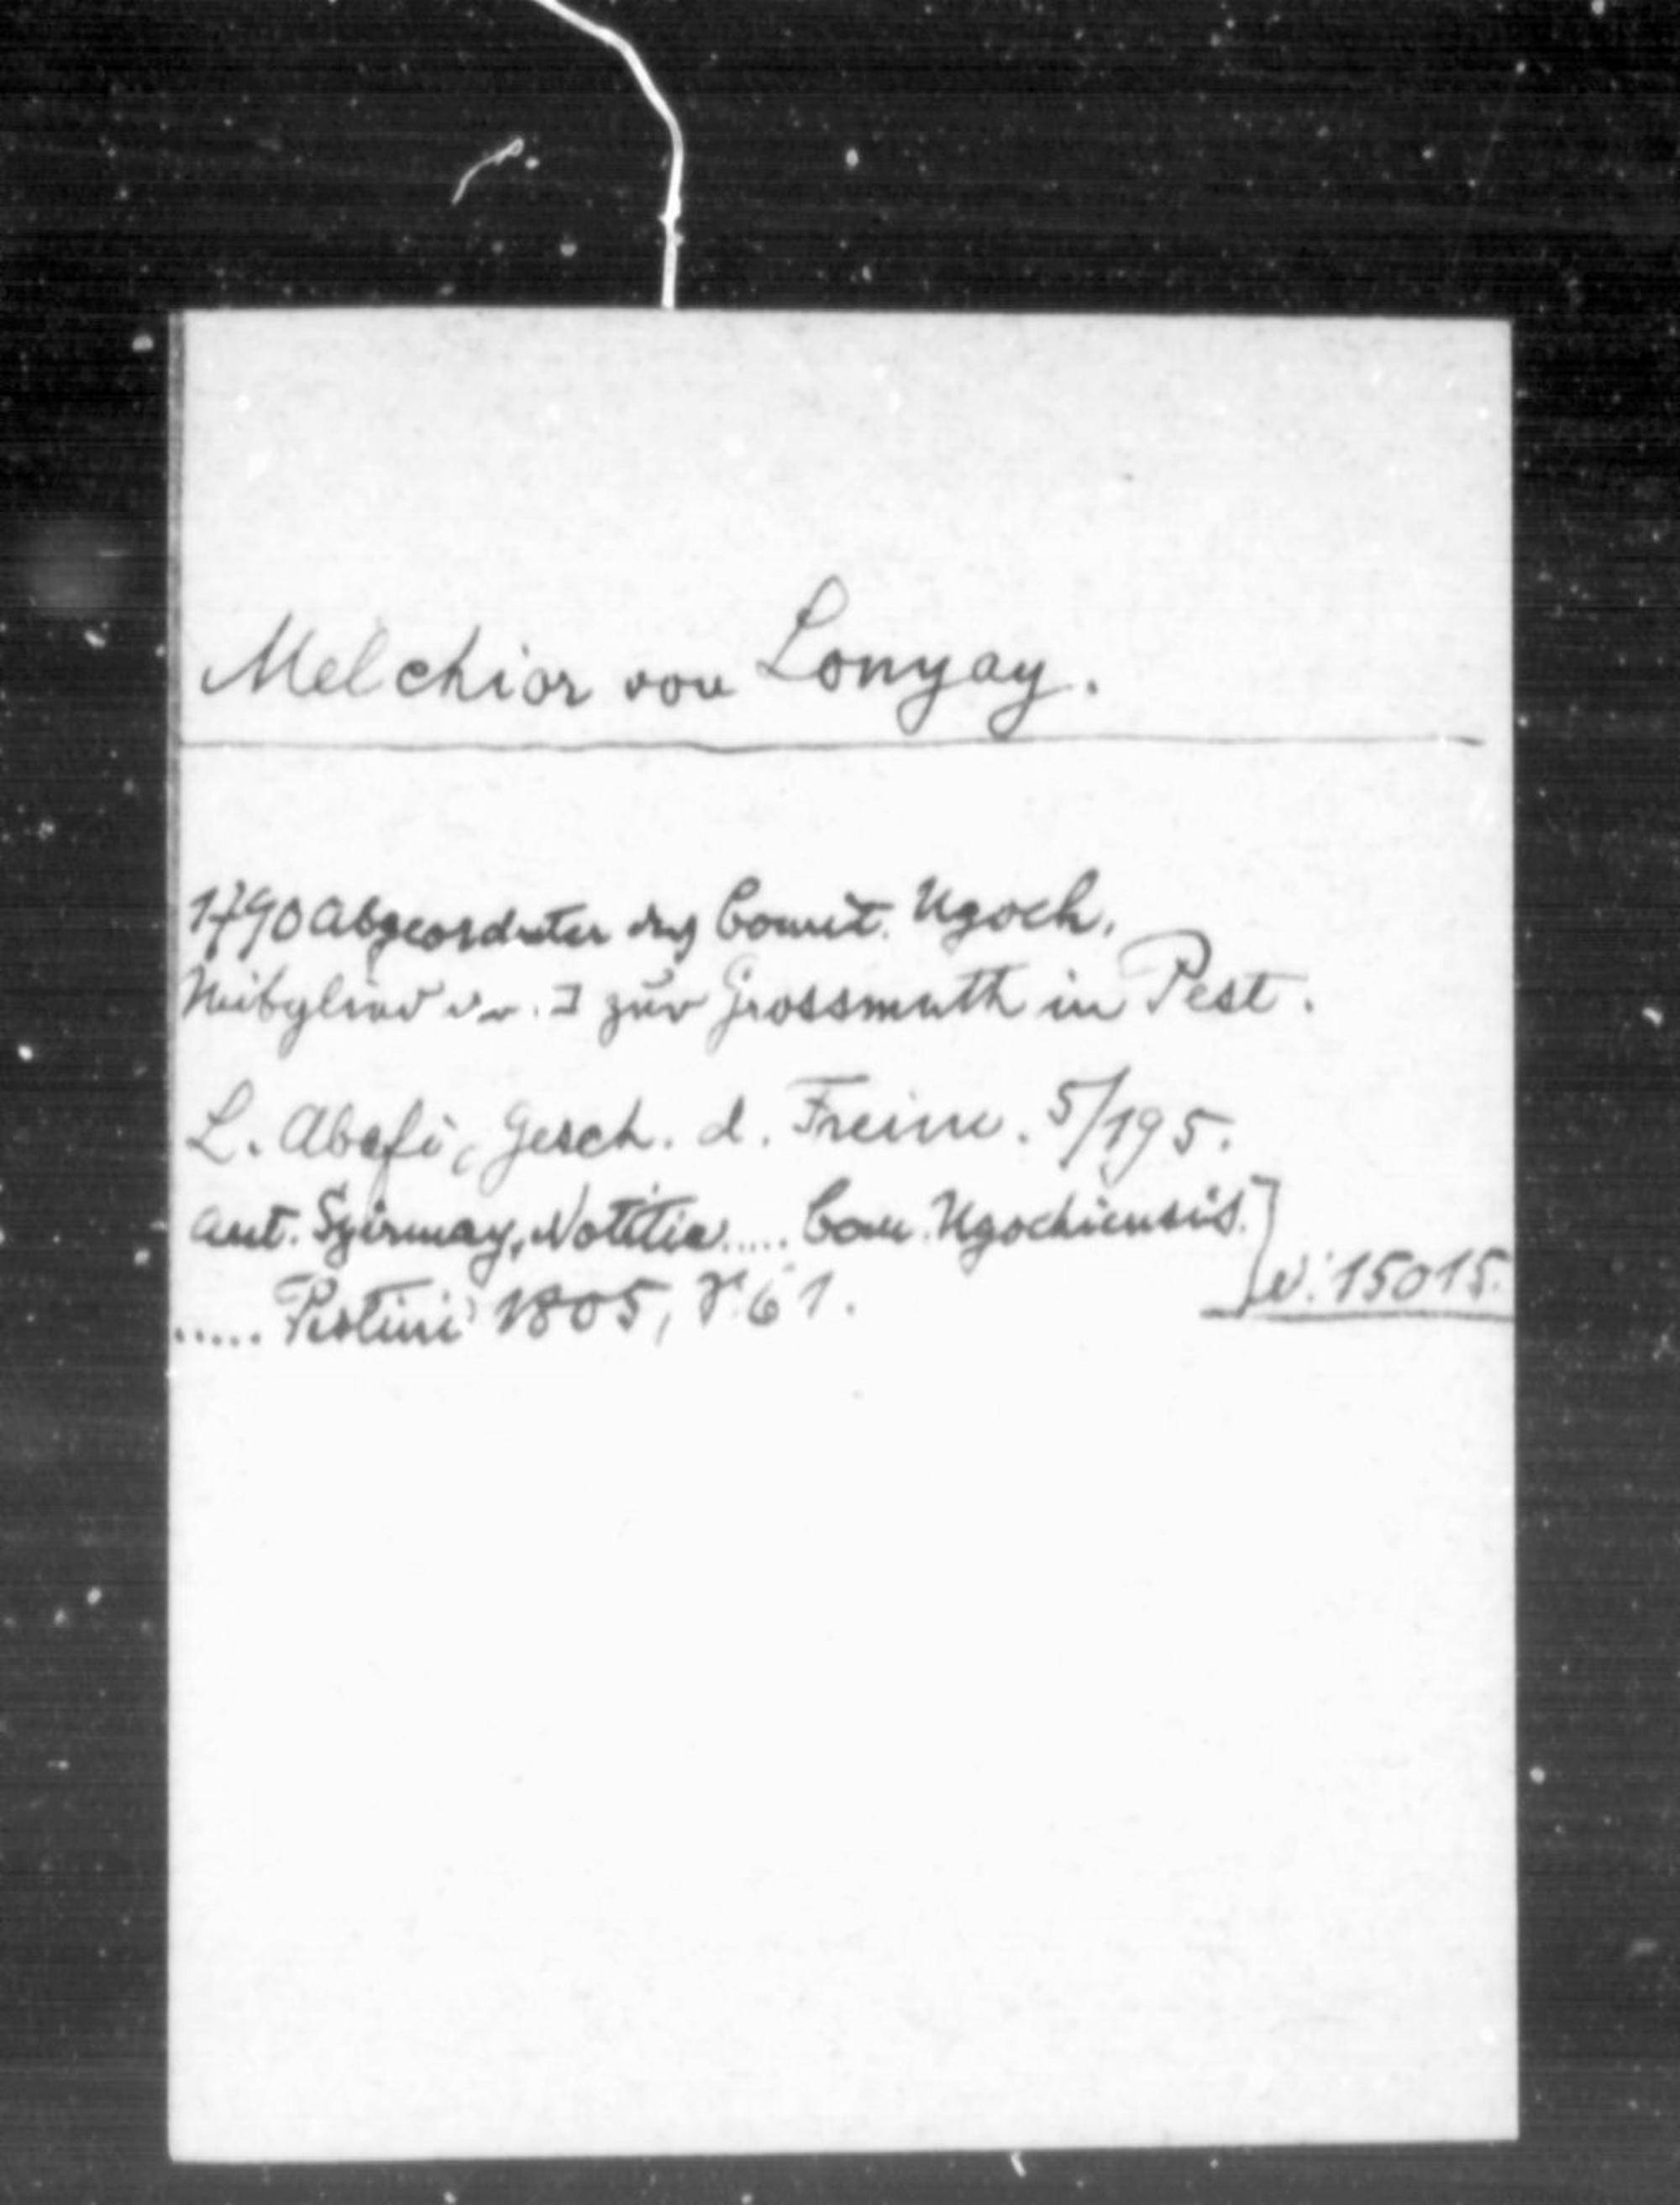 Melchior von Lonyay.
1790 Abgeordneter des Comit. Ugoch.
Mitglied d. r. ⊐ zur Grossmuth in Pest.
L. Abafi, Gesch. d. Freim. 5/195.
Ant. Szirmay, Notitia..... Com. Ugochiensis.]
..... Pestini 1805, S. 61.
W. 15015.